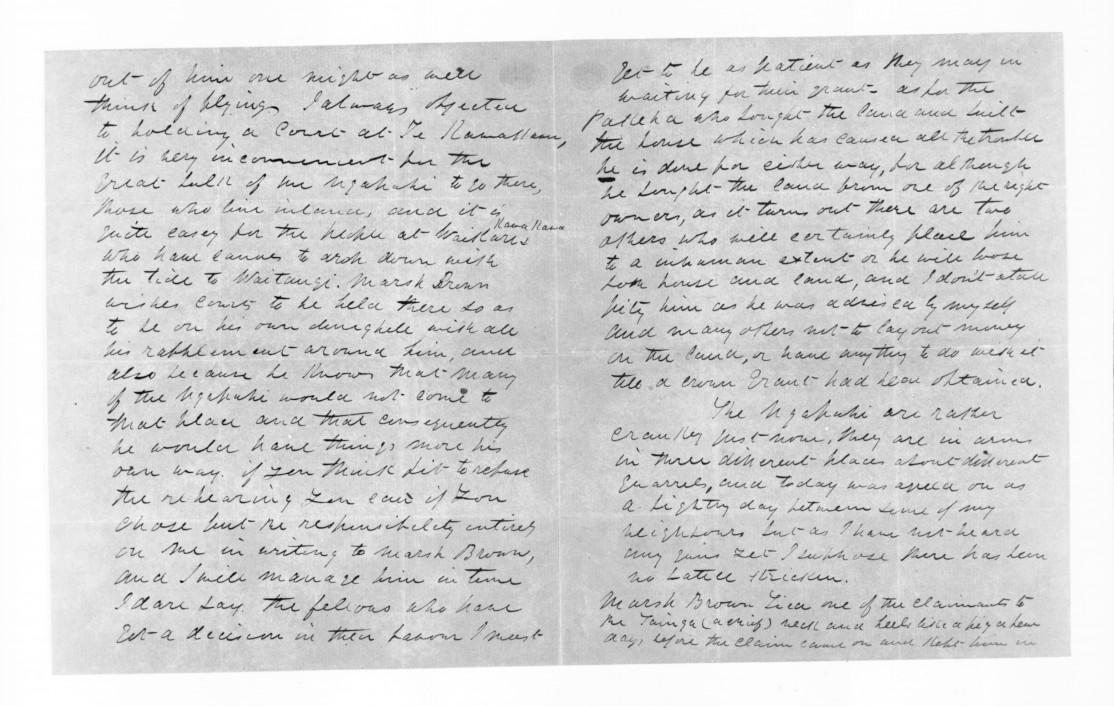 out of him one might as well
think of flying I always objected
to holding a Court at Te Kawakawa,
it is very inconvenient for the
great bulk of the Ngapuhi to go there,
those who live inland, and it is
quite easey for the people at Waikare &
Kawa Kawa
who have canoes to drop down with
the tide to Waitangi. Marsh Brown
wishes Courts to be held there so as
to be on his own dunghill with all
his rabblement around him, and
also because he knows that many
of the Ngapuhi would not come to
that place and that consequently
he would have things more his
own way. if you think fit to refuse
the rehearing you can if you
chose put the responsibility entirely
on me in writing to Marsh Brown,
and I will manage him in time
I dare say. the fellows who have
got a decision in their favour I must
get to be as patient as they may in
waiting for their grant - as for the
Pakeha who bought the land and built
the house which has caused all the trouble
he is done for either way, for although
he bought the land from one of the right
owners, as it turns out there are two
others who will certainly him
to a inhuman extent or he will loose
both house and land, and I dont atall
pity him as he was advised by myself
and many others not to lay out money
on the land, or have anything to do with it
till a crown Grant had been obtained.
The Ngapuhi are rather
cranky just now, they are in arms
in three different places about different
quarrels, and today was agreed on as
a fighting day between some of my
neighbours but as I have not heard
any guns yet I suppose there has been
no battle stricken.
Marsh Brown tied one of the claimants to
the Tainga (a chief) neck and heels like a pig a few
days before the claim came on and kept him in